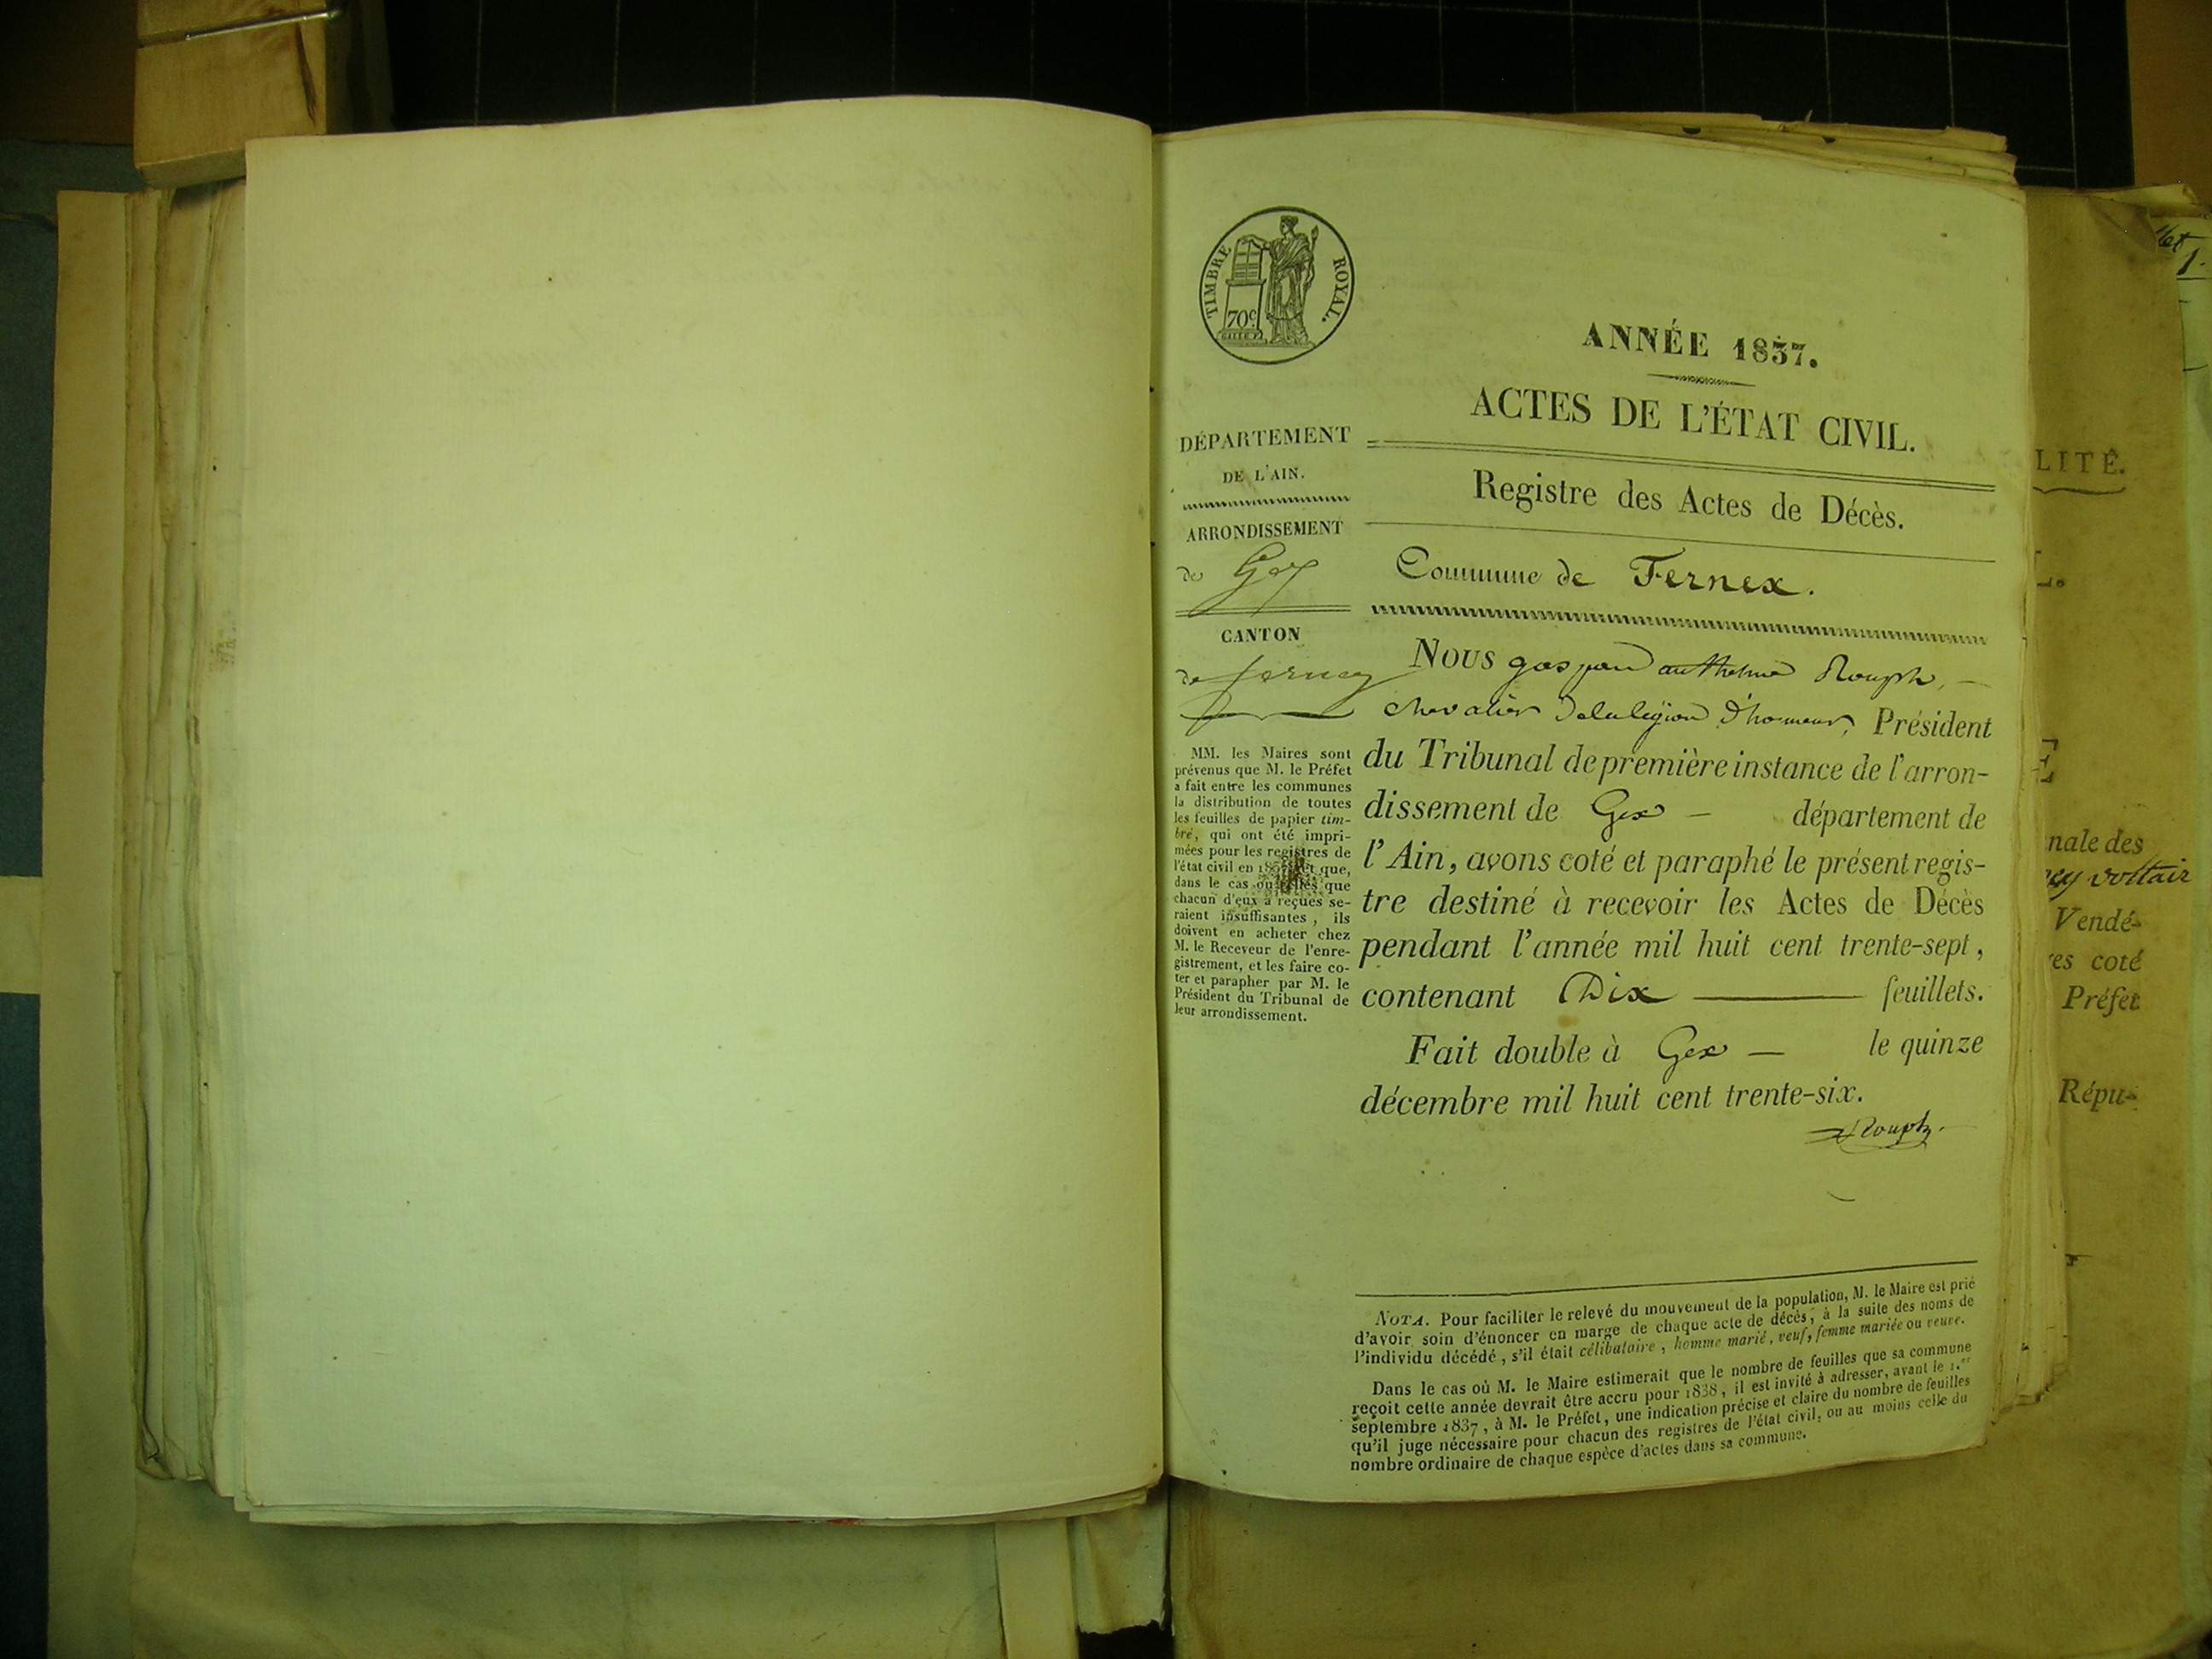 TIMBRE ROYAL.
70c
ANNÉE 1837.
ACTES DE L'ÉTAT CIVIL.
Registre des Actes de Décès.
Commune de Fernex.
DÉPARTEMENT
DE L'AIN.
ARRONDISSEMENT
de Gex
CANTON
de ferney
MM. les Maires sont
prévenus que M. le Préfet
a fait entre les communes
la distribution de toutes
les feuilles de papier tim-
bré, qui ont été impri-
mées pour les registres de
l'état civil en 1837, et que,
dans le cas où celles que
chacun d'eux a reçues se-
raient insuffisantes, ils
doivent en acheter chez
M. le Receveur de l'enre-
gistrement, et les faire co-
ter et parapher par M. le
Président du Tribunal de
leur arrondissement.
Nous gaspard anthelme Rouph, —
chevalier de la légion d'honneur, Président
du Tribunal de première instance de l'arron-
dissement de Gex — département de
l'Ain, avons coté et paraphé le présent regis-
tre destiné à recevoir les Actes de Décès
pendant l'année mil huit cent trente-sept,
contenant Dix — feuillets.
Fait double à Gex — le quinze
décembre mil huit cent trente-six.
Rouph
NOTA. Pour faciliter le relevé du mouvement de la population, M. le Maire est prié
d'avoir soin d'énoncer en marge de chaque acte de décès, à la suite des noms de
l'individu décédé, s'il était célibataire, homme marié, veuf, femme mariée ou veuve.
Dans le cas où M. le Maire estimerait que le nombre de feuilles que sa commune
reçoit cette année devrait être accru pour 1838, il est invité à adresser, avant le 1.er
septembre 1837, à M. le Préfet, une indication précise et claire du nombre de feuilles
qu'il juge nécessaire pour chacun des registres de l'état civil, ou au moins celle du
nombre ordinaire de chaque espèce d'actes dans sa commune.
LITÉ.
nale des
ey voltair
Vendé-
res coté
Préfet
Répu-